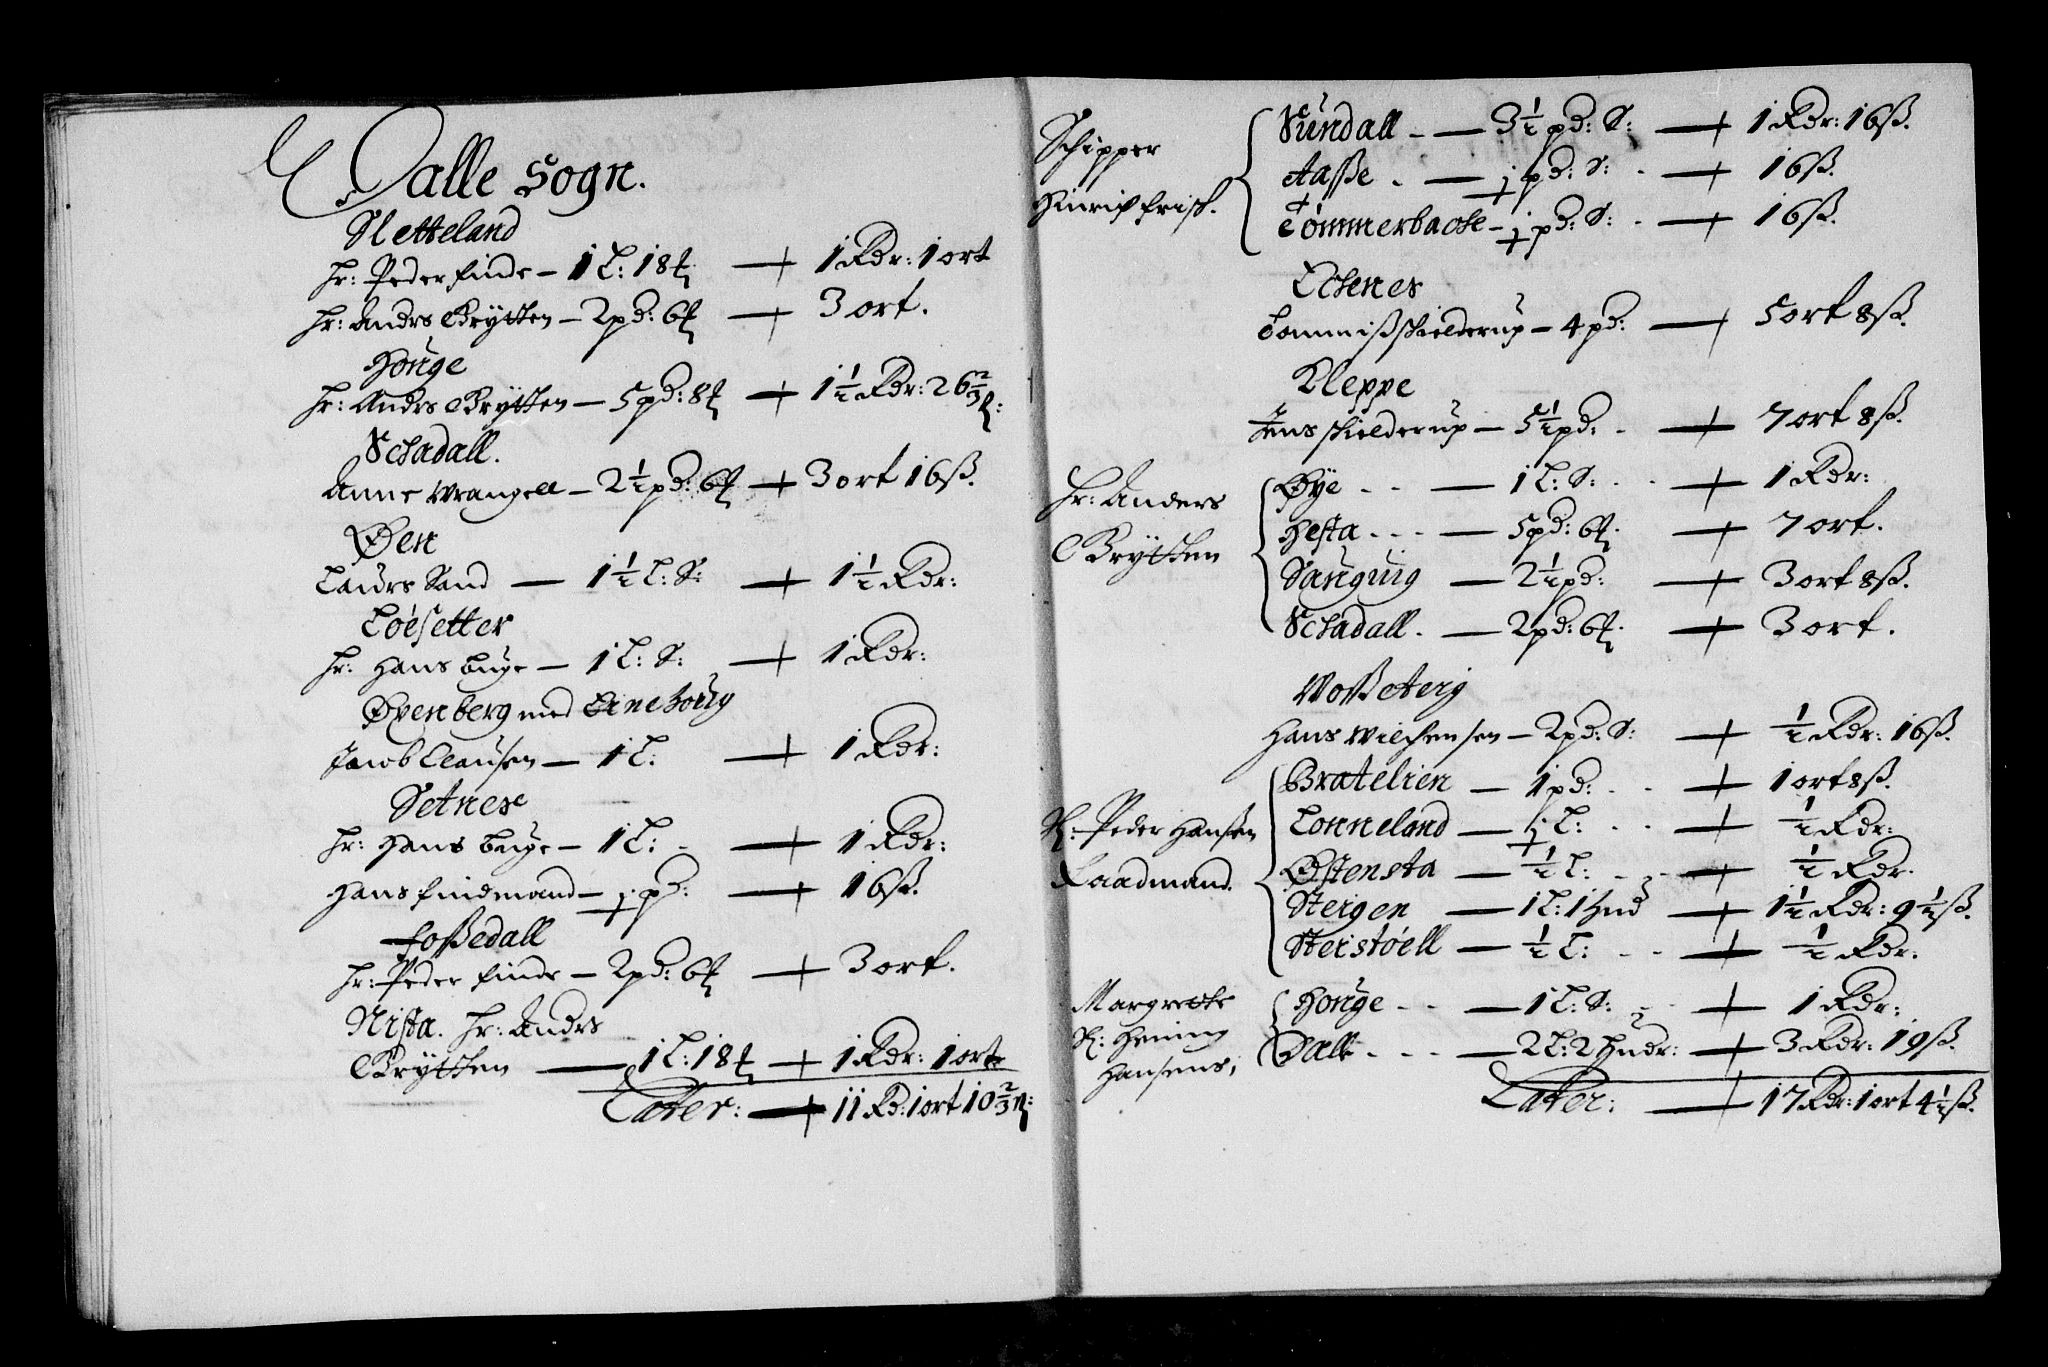 Dalle Sogn.
Sletteland
hr: Peder finde – 1 L: 18 ℔ — 1 Rdr: 1 ort
hr: Andrs Brÿtten – 2 pd: 6 ℔ — 3 ort.
Houge
hr: Andrs Brÿtten – 5 pd: 8 ℔ — 1½ Rdr: 26⅔ ß:
Schadall.
Anne Wrangell – 2½ pd: 6 ℔ — 3 ort 16 ß.
Øen
Laurs Sand — 1½ L: S: — 1½ Rdr:
Løesetter
hr: Hans buge – 1 L: S: — 1 Rdr:
Øvenberg med
Jacob Clausen – 1 L: — 1 Rdr:
Setnes
hr: Hans buge – 1 L: – — 1 Rdr:
Hans findmand – ½ pd: — 16 ß.
fossedall
hr: Peder finde – 2 pd: 6 ℔ — 3 ort.
Nista. hr: Andrs
Brÿtten — 1 L: 18 ℔ — 1 Rdr: 1 ort
Later: — 11 Rd: 1 ort 10⅔ ß:
Schipper
Hinrich frisk.
Sundall – — 3½ pd: S: — 1 Rdr: 16 ß.
Aasse – — ½ pd: S: – — 16 ß.
Tømmerbache – ½ pd: S: – — 16 ß.
Echenes
Commiss Skielderup – 4 pd: — 5 ort 8 ß.
Kleppe
Jens Skielderup – 5½ pd: – — 7 ort 8 ß.
hr: Anders
Brÿtten
Øye – – — 1 L: S: – – — 1 Rdr:
Hesta – – – — 5 pd: 6 ℔ — 7 ort.
Sauguig — 2½ pd: — 3 ort 8 ß.
Schadall. — 2 pd: 6 ℔ — 3 ort.
Hans Wilchensen – 2 pd: S: — ½ Rdr: 16 ß.
Sl: Peder Hansen
Raadmand.
Bratelien — 1 pd: – – — 1 ort 8 ß.
Lonneland — ½ L: – – — ½ Rdr:
Østensta — ½ L: – – — ½ Rdr.
Steigen — 1 L: 1 hud — 1½ Rdr: 9½ ß.
Steistøell — ½ L: – – — ½ Rdr.
Margrette
Sl: Hening
Hansens;
Houge – – — 1 L: S: – — 1 Rdr:
Dalle – – – — 2 L: 2 hudr: — 3 Rdr: 19 ß.
Later: — 17 Rdr: 1 ort 4½ ß.